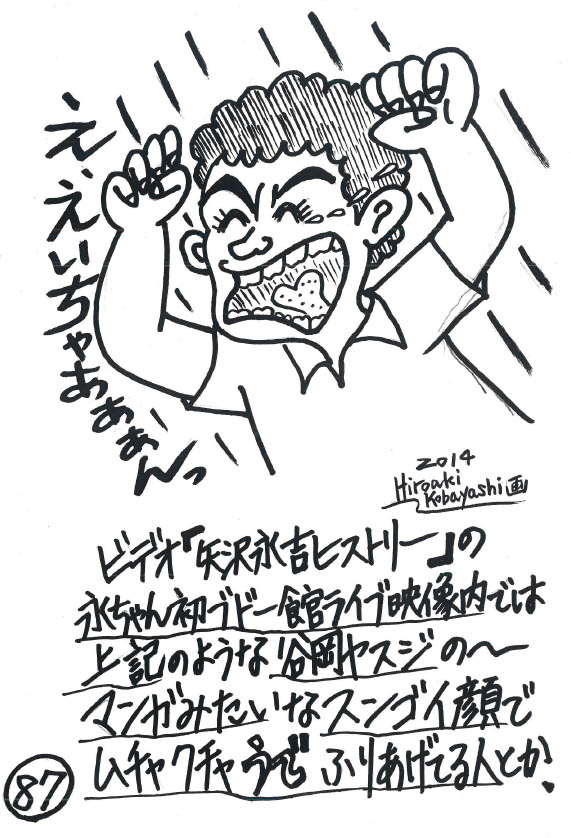 え、えいちゃあぁぁんっ
2014
Hiroaki
Kobayashi画
ビデオ『矢沢永吉ヒストリー』の
永ちゃん初ブドー館ライブ映像内では
上記のような谷岡ヤスジの〜
マンガみたいなスンゴイ顔で
ムチャクチャうでふりあげてる人とか、
87